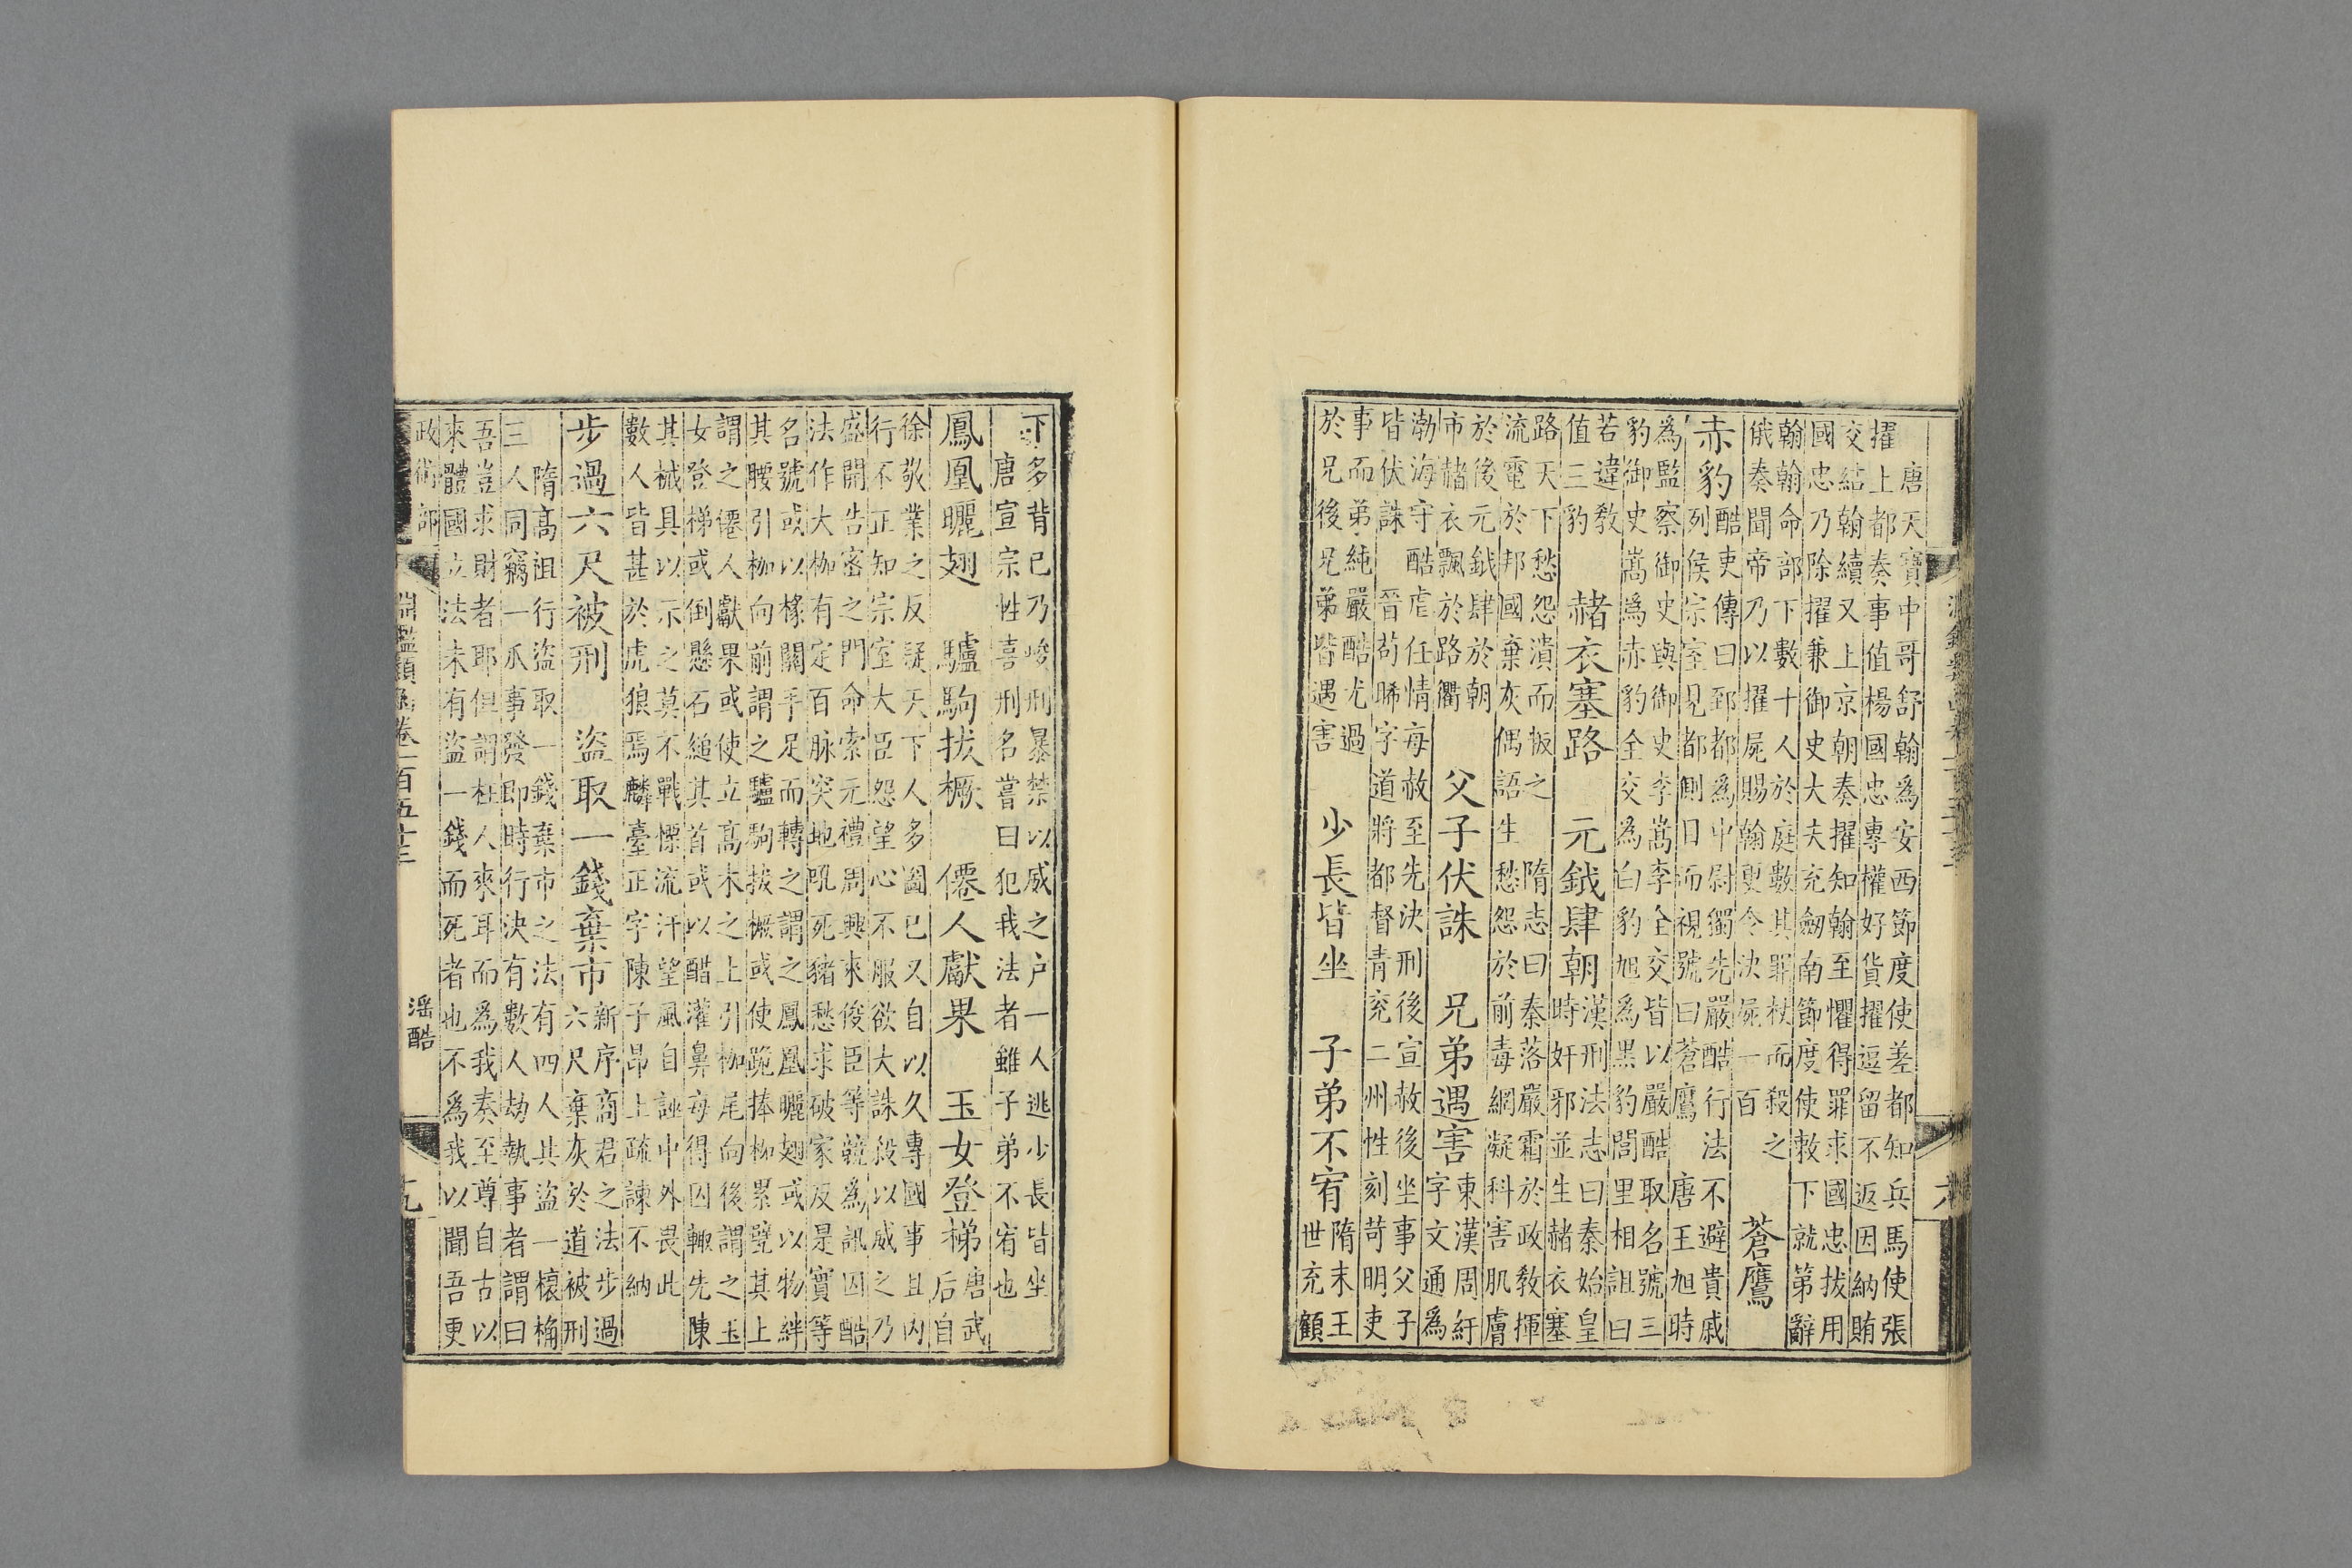 唐天寶中哥舒翰為安西節度使差都知兵馬使張
擢上都奏事值楊國忠專權好貨擢逗留不返因納賄
交結翰續又上京朝奏擢知翰至懼得罪求國忠拔用
國忠乃除擢兼御史大夫充劒南節度使敕下就第辭
翰翰命部下數十人於庭數其罪杖而殺之
俄奏聞帝乃以擢屍賜翰更令決屍一百
蒼鷹
赤豹
酷吏傳曰郅都為中尉獨先嚴酷行法不避貴戚
列侯宗室見都側目而視號曰蒼鷹　唐王旭時
為監察御史與御史李嵩李全交皆以嚴酷取名號三
豹御史嵩為赤豹全交為白豹旭為黑豹閭里相詛曰
若違教
值三豹
赭衣塞路　元鉞肆朝
漢刑法志曰秦始皇
時奸邪並生赭衣塞
路天下愁怨潰而叛之　隋志曰秦落嚴霜於政教揮
流電於邦國棄灰偶語生愁怨於前毒網凝科害肌膚
於後元鉞肆於朝
市赭衣飄於路衢
父子伏誅　兄弟遇害
東漢周紆
字文通為
渤海守酷虐任情每赦至先決刑後宣赦後坐事父子
皆伏誅　晉苟晞字道將都督青兗二州性刻苛明吏
事而弟純嚴酷尤過
於兄後兄弟皆遇害
少長皆坐　子弟不宥
隋末王
世充顧
下多背已乃峻刑暴禁以威之户一人逃少長皆坐
唐宣宗性喜刑名嘗曰犯我法者雖子弟不宥也
鳳凰曬翅　驢駒拔橛　僊人獻果　玉女登梯
唐武
后自
徐敬業之反疑天下人多圖已又自以久專國事且内
行不正知宗室大臣怨望心不服欲大誅殺以威之乃
盛開告密之門命索元禮周興來俊臣等競為訊囚酷
法作大枷有定百脉突地吼死豬愁求破家反是實等
名號或以椽關手足而轉之謂之鳳凰曬翅或以物絆
其腰引枷向前謂之驢駒拔橛或使跪捧枷累甓其上
謂之僊人獻果或使立高木之上引枷尾向後謂之玉
女登梯或倒懸石縋其首或以醋灌鼻每得囚輙先陳
其械具以示之莫不戰慄流汗望風自誣中外畏此
數人皆甚於虎狼焉麟臺正字陳子昂上疏諫不納
步過六尺被刑　盜取一錢棄市
新序商君之法步過
六尺棄灰於道被刑
隋高祖行盜取一錢棄市之法有四人其盜一榱桷
三人同竊一瓜事發即時行決有數人劫執事者謂曰
吾豈求財者耶但謂枉人來耳而為我奏至尊自古以
來體國立法未有盜一錢而死者也不為我以聞吾更
政術部
淵鑑類函卷一百五十三
滛酷
十九